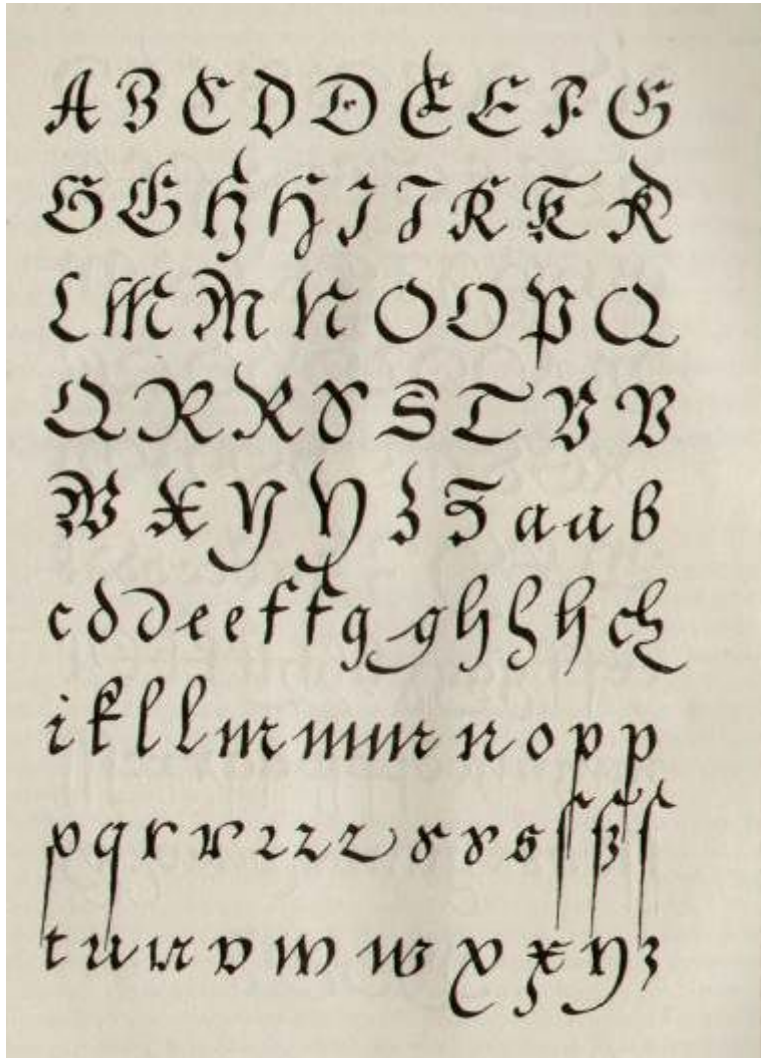 A B C D D E E F G
G G H H I J K K K
L M M N O O P Q
Q R R S S T V V
W X Y Y Z Z a a b
c d d e e f f g g h h h ch
i k l l m m m n o p p
p q r r ꝛ ꝛ ꝛ s s s ſ ß ſ
t u u v w w x x y z